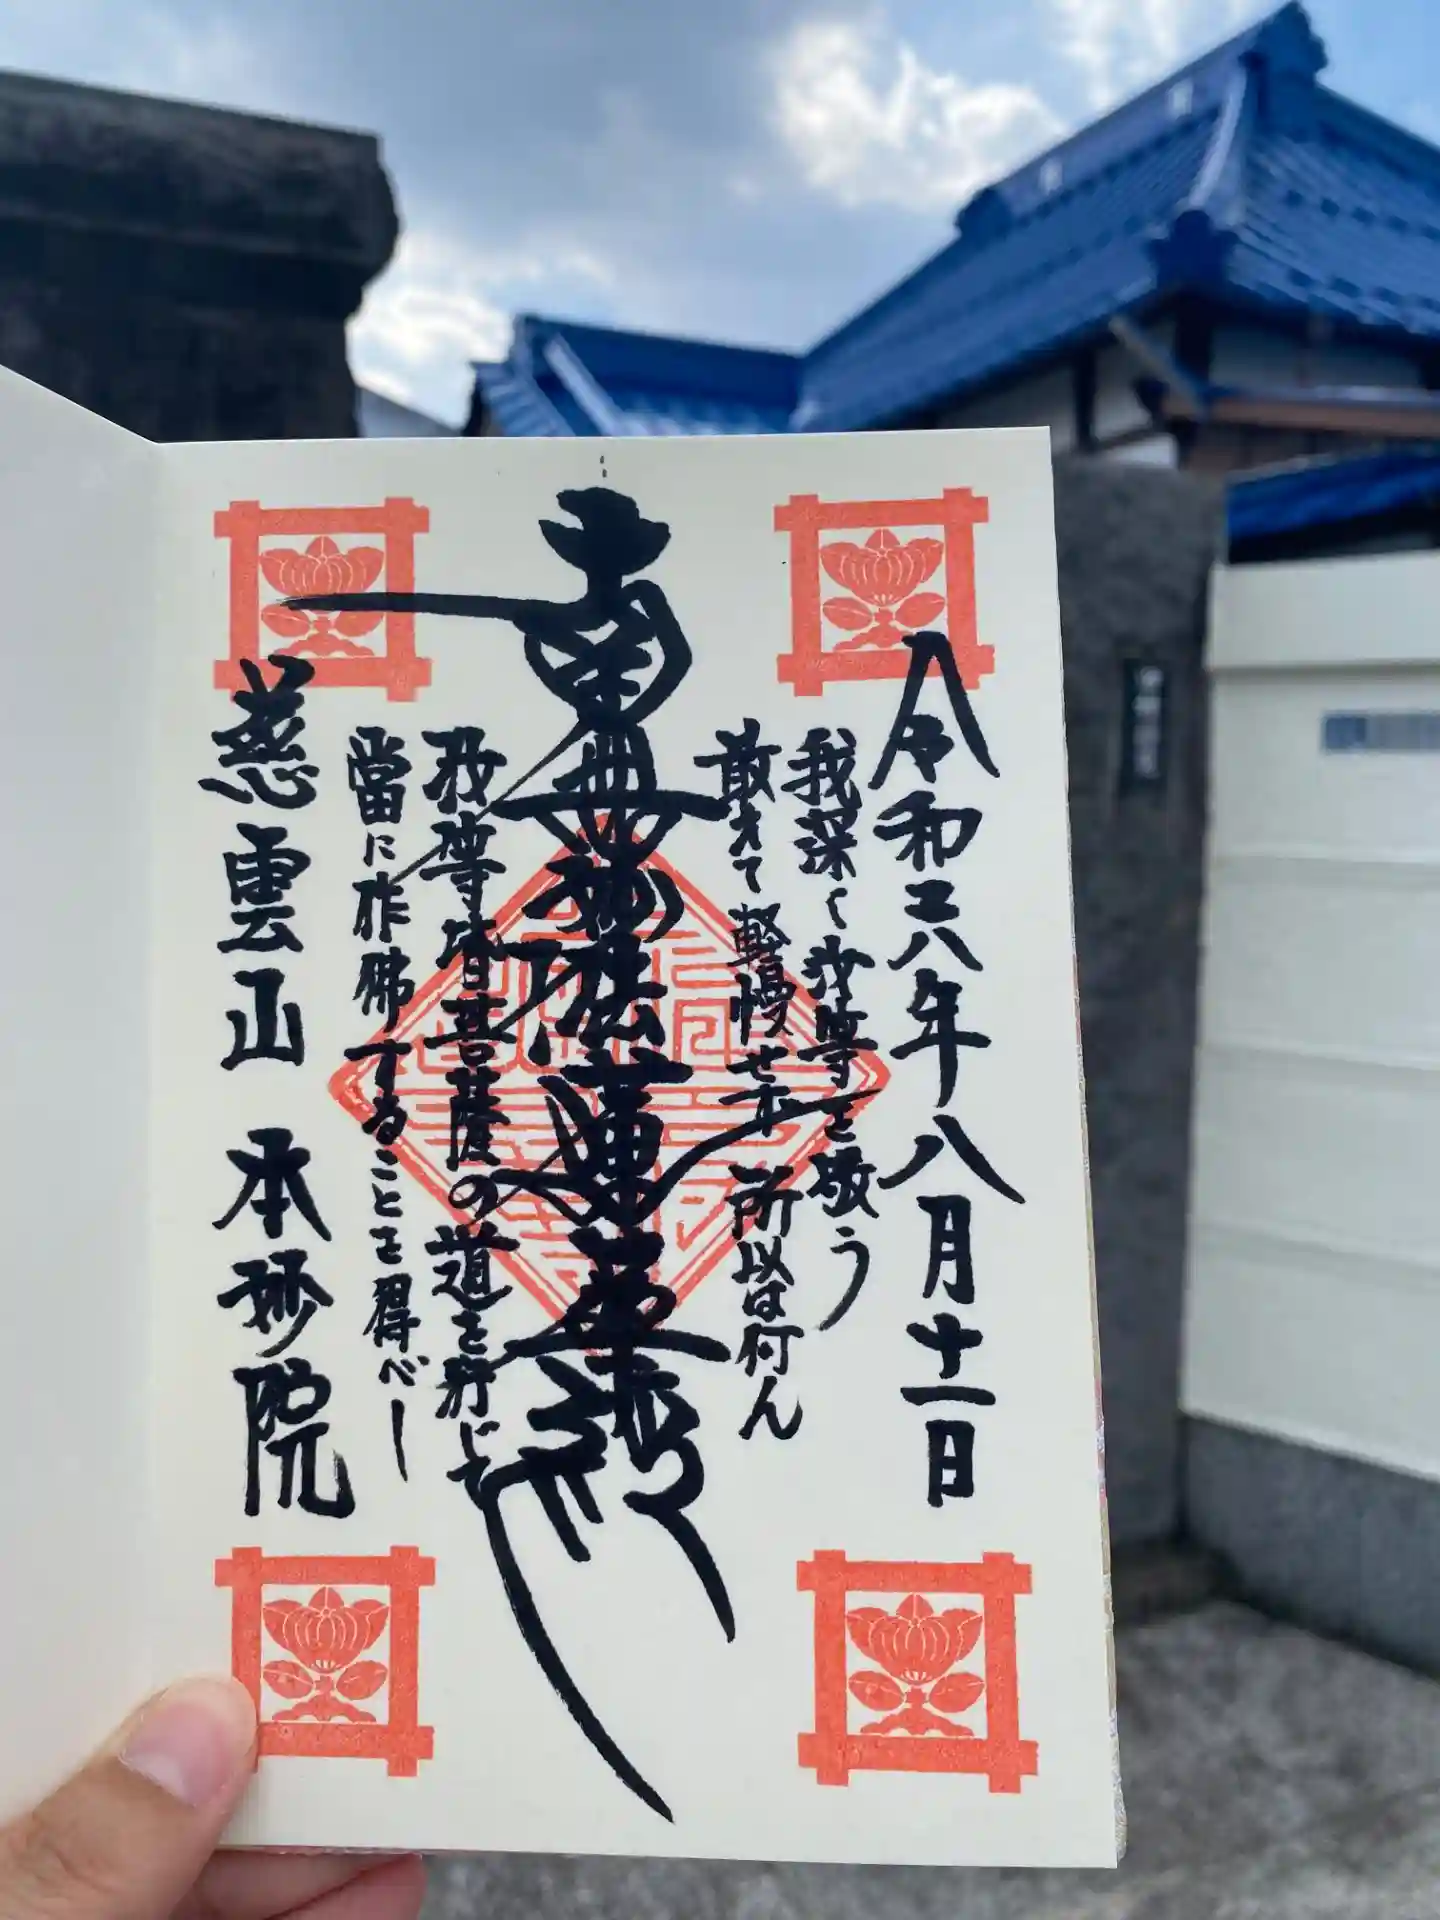 令和六年八月十一日
我深く汝等を敬う
敢えて軽慢せず 所以は何ん
南無妙法蓮華経
汝等皆菩薩の道を行じて
當に作佛することを得べし
慈雲山 本妙院